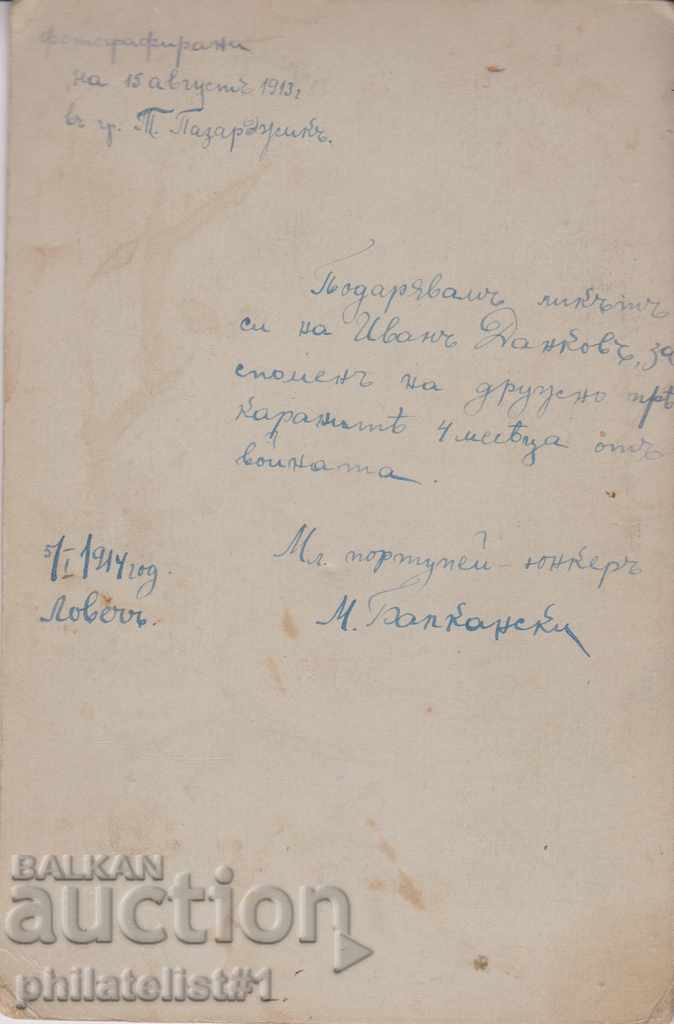 фотографирани
на 15 августъ 1913 г
въ гр. Т. Пазарджикъ.
Подарявамъ ликътъ
си на Иванъ Данковъ, за
споменъ на дружно прѣ
каранитѣ 4 месѣца отъ
войната.
Мл. портупей-юнкеръ
М. Бапкански
5/I 1914 год.
Ловечъ.
BALKAN
auction
philatelist#1